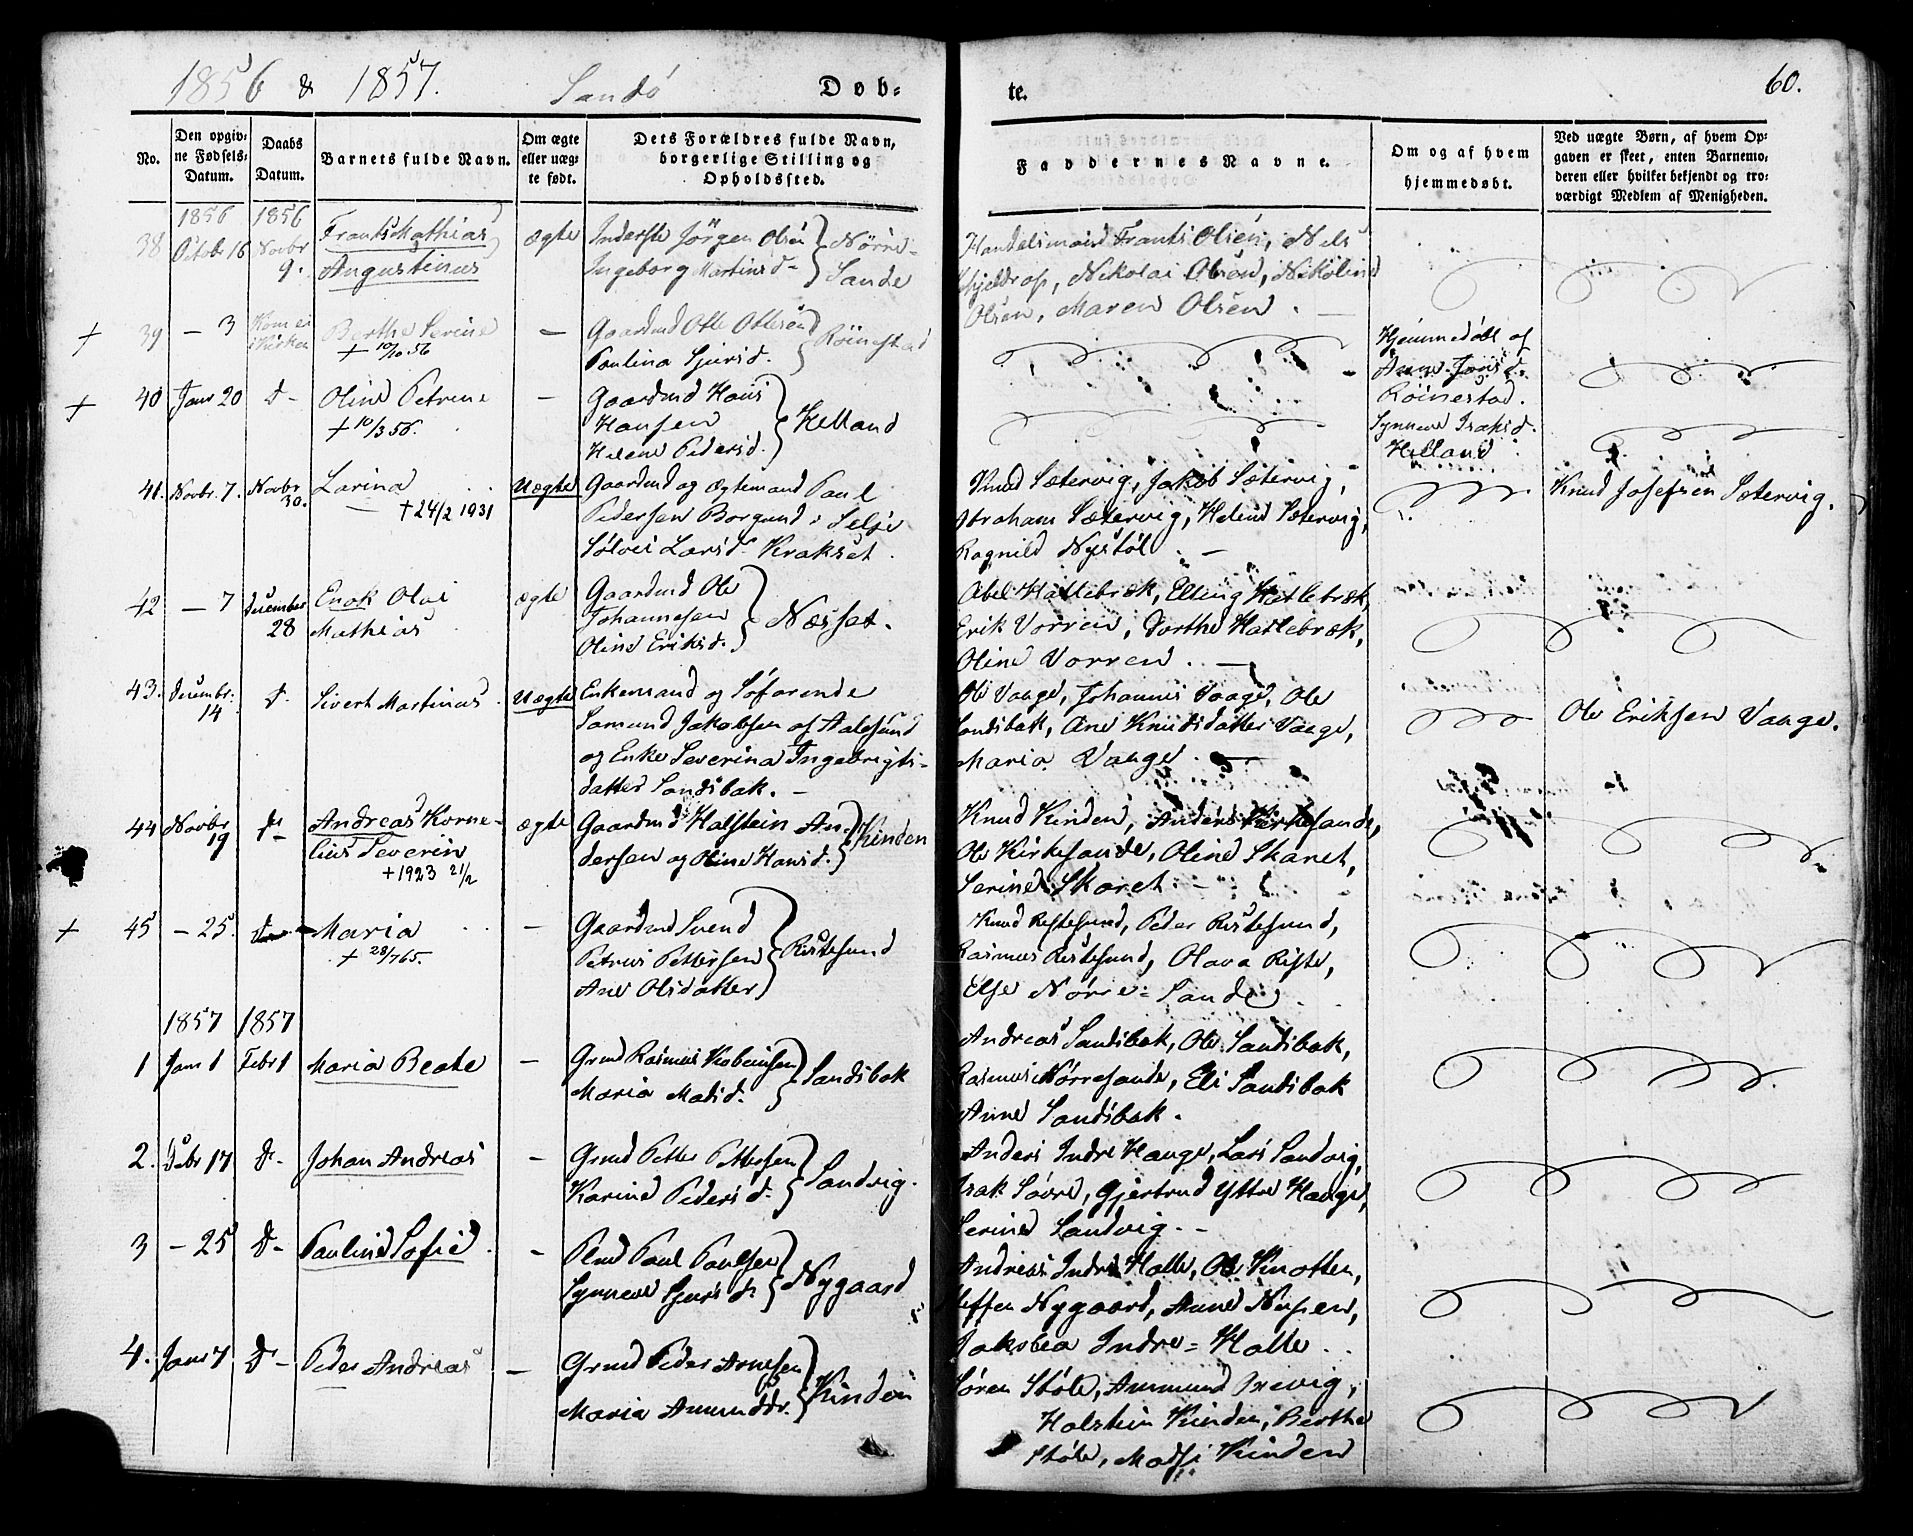 1856 & 1857. Sandö Døb-
te. 60.
No.
Den opgiv-
ne Fødsels-
Datum.
Daabs
Datum.
Barnets fulde Navn.
Om ægte
eller uæg-
te født.
Dets Forældres fulde Navn,
borgerlige Stilling og
Opholdssted.
Faddernes Navne.
Om og af hvem
hjemmedøbt.
Ved uægte Børn, af hvem Op-
gaven er skeet, enten Barnemo-
deren eller hvilket bekjendt og tro-
værdigt Medlem af Menigheden.
1856 1856
38 Octobr 16 Novbr 9.
Frants Mathias
Augustinus
ægte
Inderste Jörgen Olsen
Ingeborg Martinsd-
Nörre-
Sande
Handelsmand Frants Olsen, Nels
Nikolai Olsen, Nikoline
Olsen, Maren Olsen.
+ 39 - 3
Kom ei
i Kirken
Berthe Serine
+ 10/10 56
-
Gaardmd Otte Ottesen
Paulina Sjursd.
Röinestad
Hjemmedöbt af
Anne Jonsd.
Röinestad.
+ 40 Janr 20 D-
Oline Petrine
+ 10/3 56.
-
Gaardmd Hans
Hansen
Helene Pedersd.
Helland
Synneve Isaksd.
Helland
41. Novbr. 7. Novbr 30.
Larina
+ 24/2 1931
Uægte
Gaardmd og Ægtemand Paul
Pedersen Borgund i Selje
Sölvei Larsd. Krakset.
Knud Sætervig, Jakob Sætervig,
Abraham Sætervig, Heline Sætervig,
Ragnild Nystöl. -
Knud Josefsen Sætervig.
42 - 7 December 28
Enok Olai
Mathias
ægte
Gaardmd Ole
Johannesen
Oline Eriksd.
Næsset.
Abel Hatlebræk, Elling Hatlebræk,
Erik Vorren, Dorthe Hatlebræk,
Oline Vorren. -
43. Decembr. 14 D.
Sivert Martinus.
Uægte
Enkemand og Söfarende
Samund Jakobsen af Aalesund
og Enke Severina Ingebrigts-
datter Sandsbak. -
Ole Vaage, Johannes Vaage, Ole
Sandsbak, Ane Knudsdatter Vaage,
Maria Vaage. -
Ole Eriksen Vaage.
44 Novbr 19 D-
Andreas Korne-
lius Severin
+ 1923 21/2
ægte
Gaardmd Halstein An-
dersen og Oline Hansd.
Kinden
Knud Kinden, Anders Kirkesande,
Ole Kirkesande, Oline Skaret,
Serine Skaret. -
+ 45 - 25. D-
Maria
+ 28/7 65.
-
Gaardmd Svend
Petrus Pettersen
Ane Olsdatter
Ristesund
Knud Ristesund, Peder Ristesund,
Rasmus Ristesund, Olava Riste,
Else Nörre-Sande
1857 1857
1 Janr 1 Febr 1
Maria Beate
-
Grmd Rasmus
Maria Madsd.
Sandsbak
Andreas Sandsbak, Ole Sandsbak,
Rasmus Nörresande, Eli Sandsbak
Anne Sandsbak.
2. Febr 17 D-
Johan Andreas
-
Grmd Petter Pettersen
Karine Pedersd.
Sandvig.
Anders Indre Hauge, Lars Sandvig,
Isak Sövre, Gjertrud Yttre Hauge,
Serine Sandvig. -
3 - 25 D-
Pauline Sofie
-
Plmd Paul Paulsen
Synneve Sjursd.
Nygaard
Andreas Indre Halle, Ole Knotten,
Steffen Nygaard, Anne Nupen,
Jakobea Indre-Halle.
4. Janr 7 D-
Peder Andreas
-
Grmd Peder Arnesen
Maria Amundsdr.
Kinden
Sören Stöle, Ammund Previg,
Halstein Kinden, Berthe
Stöle, Madsi Kinden